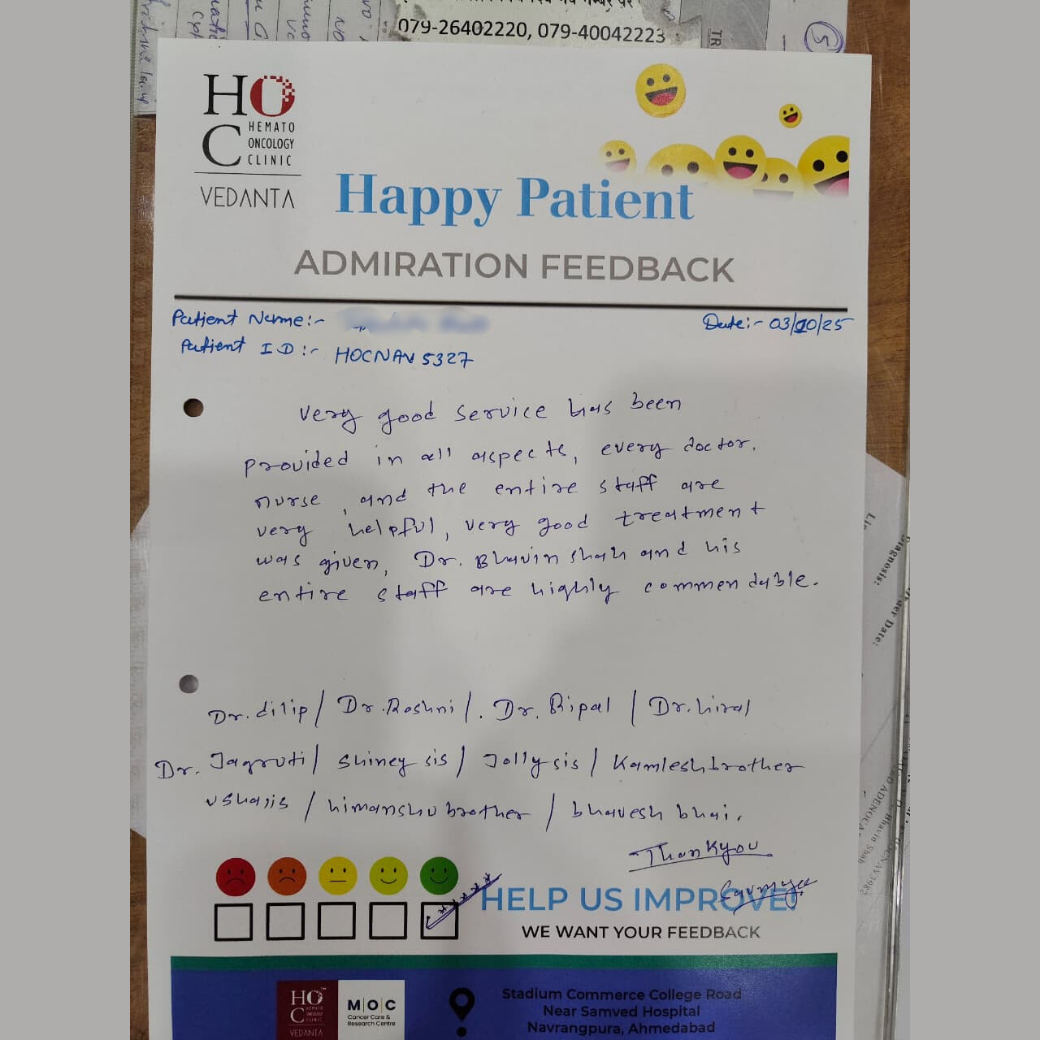 079-26402220, 079-40042223
TR
5
HOC
HEMATO
ONCOLOGY
CLINIC
VEDANTA
Happy Patient
ADMIRATION FEEDBACK
Patient Name:-
Date:- 03/10/25
Patient ID:- HOCNAV 5327
very good service has been
provided in all aspects, every doctor.
nurse, and the entire staff are
very helpful, very good treatment
was given, Dr. Bhavin shah and his
entire staff are highly commendable.
Dr. dilip / Dr. Roshni /. Dr. Bipal / Dr. hiral
Dr. Jagruti / Shiney sis / Jolly sis / Kamlesh brother
usha sis / himanshu brother / bhavesh bhai.
Thank you
HELP US IMPROVE!
WE WANT YOUR FEEDBACK
HOC
VEDANTA
M|O|C
Cancer Care &
Research Centre
Stadium Commerce College Road
Near Samved Hospital
Navrangpura, Ahmedabad
Diagnosis:
der Date:
Dr. Bhavin Shah